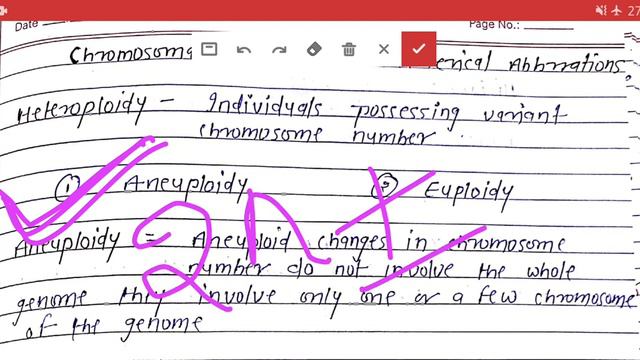 27
Date
Page No.:
Chromosoma erical Abbrations
Heteroploidy - Individuals possessing variant
chromosome number
① Aneuploidy ② Euploidy
Aneuploidy = Aneuploid changes in chromosome
number do not involve the whole
genome they involve only one or a few chromosome
of the genome
2n